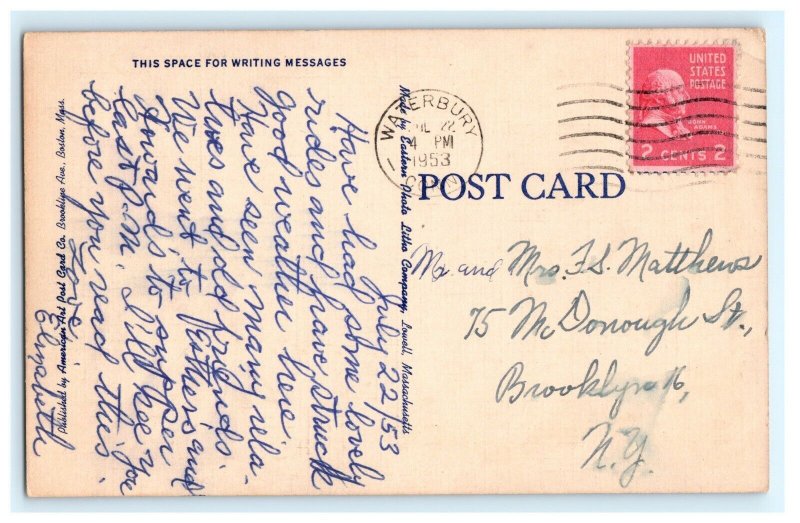 THIS SPACE FOR WRITING MESSAGES
July 22/53
Have had some lovely
rides and have struck
good weather here.
Have seen many rela-
tives and old friends.
We went to Esther's and
Howard's to supper
last P.M. I'll see you
before you read this.
Love,
Elizabeth
Published by American Art Post Card Co. Brookline Ave., Boston, Mass.
Made by Eastern Photo Litho Company, Lowell, Massachusetts
WATERBURY
JUL 22
4 PM
1953
CONN.
UNITED
STATES
POSTAGE
JOHN
ADAMS
2 CENTS 2
POST CARD
Mr. and Mrs. F.S. Matthews
75 McDonough St.,
Brooklyn 16,
N.Y.